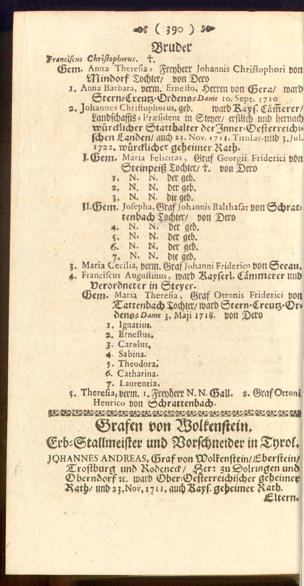 ( 390 )
Bruder
Franciscus Christophorus. †.
Gem. Anna Theresia, Freyherr Johannis Christophori von
Mindorf Tochter/ von Dero
1. Anna Barbara, verm. Ernesto, Herren von Gera/ ward
Stern-Creutz-Ordens-Dame 10. Sept. 1710
2. Johannes Christophorus, geb. ward Kays. Cämerer/
Landschaffts-Præsident in Steyer, erstlich und hernach
würcklicher Statthalter der Inner-Oesterreichi-
schen Landen/ auch 23. Nov. 1711. Titular- und 3. Jul.
1722. würcklicher geheimer Rath.
I. Gem. Maria Felicitas, Graf Georgii Friderici von
Steinpeiß Tochter/ †. von Dero
1. N. N. der geb.
2. N. N. der geb.
3. N. N. die geb.
II. Gem. Josepha, Graf Johannis Balthasar von Schrat-
tenbach Tochter/ von Dero
4. N. N. der geb.
5. N. N. der geb.
6. N. N. der geb.
7. N. N. die geb.
3. Maria Cecilia, verm. Graf Johanni Friderico von Seeau.
4. Franciscus Augustinus, ward Kayserl. Cämmerer und
Verordneter in Steyer.
Gem. Maria Theresia, Graf Ottonis Friderici von
Tattenbach Tochter/ ward Stern-Creutz-Or-
dens Dame 3. Maji 1718. von Dero
1. Ignatius.
2. Ernestus.
3. Carolus.
4. Sabina.
5. Theodora.
6. Catharina.
7. Laurentia.
5. Theresia, verm. 1. Freyherr N. N. Gall. 2. Graf Ottoni
Henrico von Schrattenbach.
Grafen von Wolkenstein.
Erb-Stallmeister und Vorschneider in Tyrol.
JOHANNES ANDREAS, Graf von Wolkenstein/ Eberstein/
Trostburg und Rodeneck/ Herr zu Solringen und
Oberndorf ꝛc. ward Ober-Oesterreichischer geheimer
Rath/ und 23. Nov. 1711. auch Kays. geheimer Rath.
Eltern.